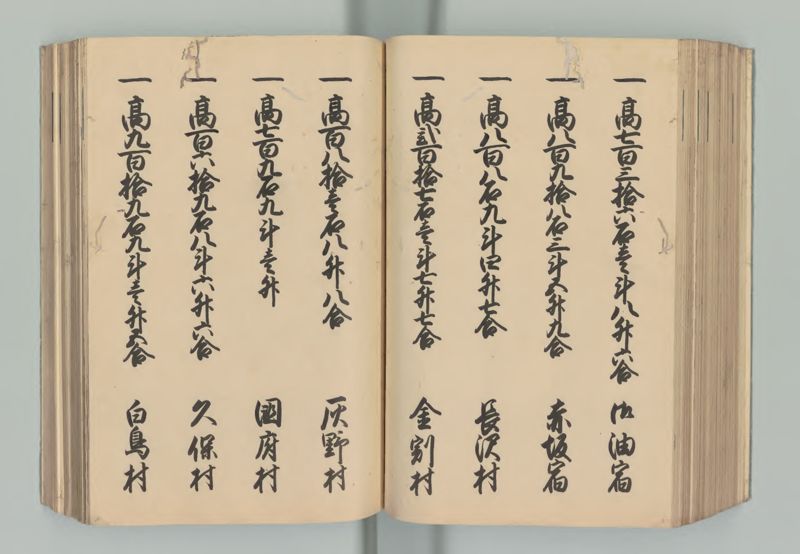 一 高七百三拾六石壱斗八升六合 御油宿
一 高八百九拾八石三斗五升九合 赤坂宿
一 高八百八石九斗四升七合 長沢村
一 高弐百拾七石壱斗七升七合 金割村
一 高百八拾壱石八升八合 灰野村
一 高七百九石九斗壱升 國府村
一 高百六拾九石八斗六升六合 久保村
一 高九百拾九石九斗壱升五合 白鳥村